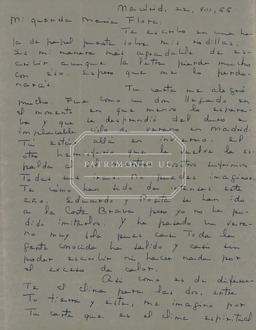 Madrid, 22, VIII, 66
Mi querida María Flora:
Te escribo en una ho-
ja de papel puesta sobre mis rodillas.
Es mi manera más agradable de es-
cribir aunque la letra pierde mucho
con eso. Espero que me lo perdo-
narás.
Tu carta me alegró
mucho. Fue como un don llegado en
el momento en que menos lo espera-
ba y que se desprendió del duro e
implacable cielo de verano en Madrid.
Tú estás allá en invierno. El
otro hemisferio que vuelve la es-
palda a
Todas
Te cómo han sido de intensos este
año. Eduardo y se han ido
a la Costa Brava pero yo no he po-
dido imitarlos, y he pasado un vera-
no muy sola pues casi toda la
gente conocida ha salido y casi sin
poder escribir ni hacer nada por
el exceso de calor.
Así como es de diferen-
te el clima para las dos, entre
tu tierra y esta, me imagino por
tu carta que es el clima espiritual
PATRIMONIO UC